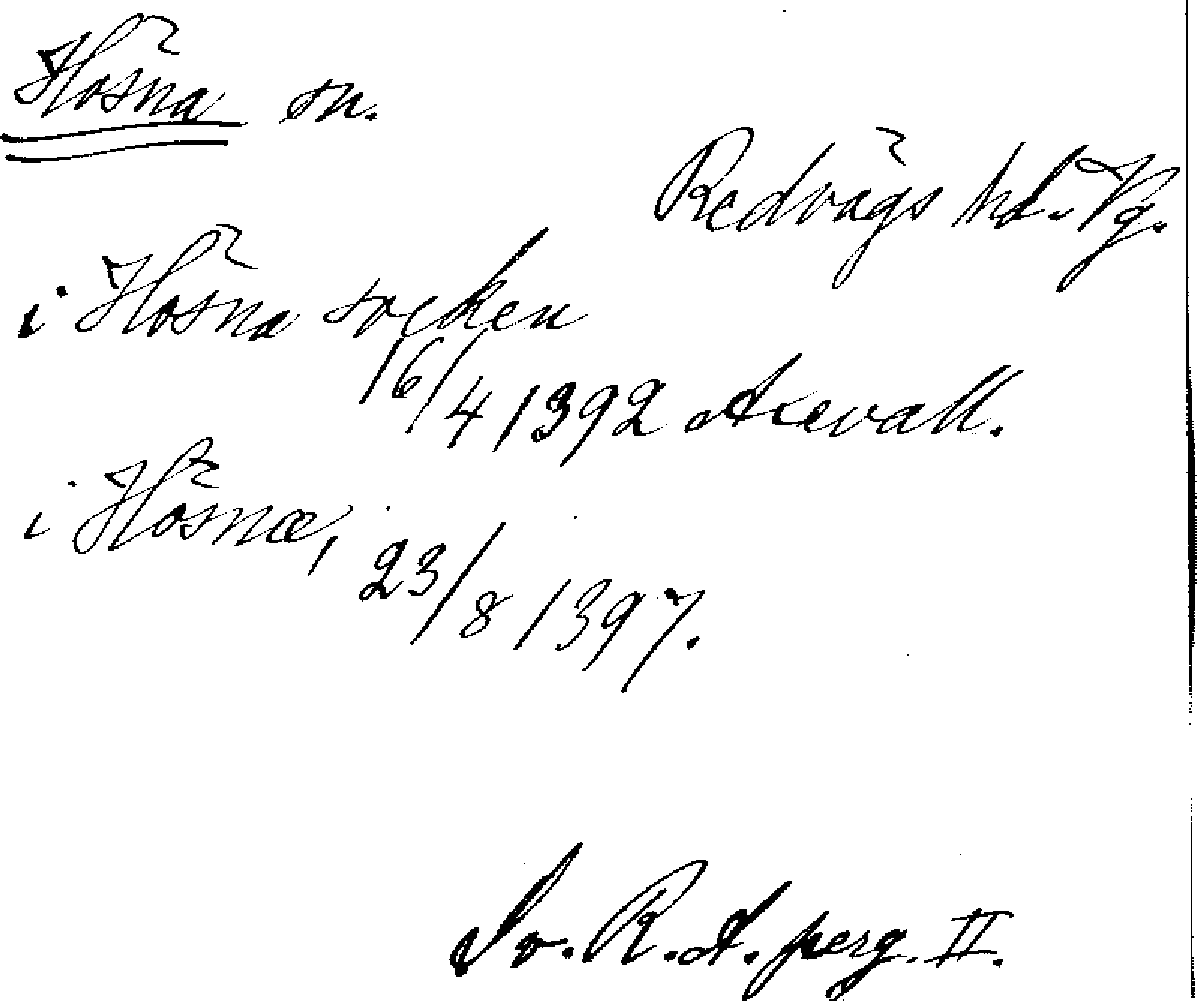 Hösna sn.
Redvägs hd. Vg.
i Hösna socken
16/4 1392 Axevall.
i Hösnæ, 23/8 1397.
Sv. R. A. perg. II.